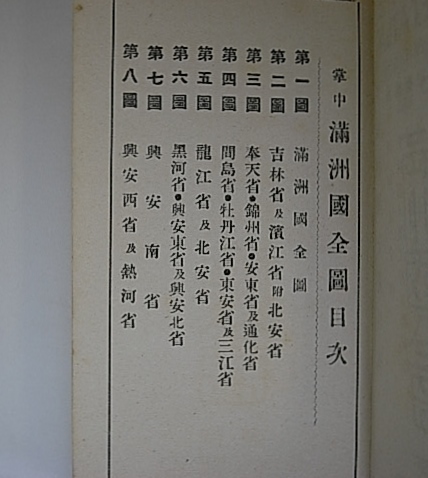 掌中 滿洲國全圖目次
第一圖 滿洲國全圖
第二圖 吉林省及濱江省附北安省
第三圖 奉天省●錦州省●安東省及通化省
第四圖 間島省●牡丹江省●東安省及三江省
第五圖 龍江省及北安省
第六圖 黑河省●興安東省及興安北省
第七圖 興安南省
第八圖 興安西省及熱河省